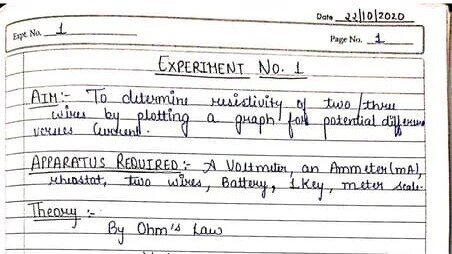 Date 22/10/2020
Expt. No. 1
Page No. 1
EXPERIMENT No. 1
AIM:- To determine resistivity of two/three
wires by plotting a graph for potential difference
verses current.
APPARATUS REQUIRED:- A Voltmeter, an Ammeter(mA),
rheostat, two wires, Battery, 1 Key, meter scale.
Theory :-
By Ohm's Law